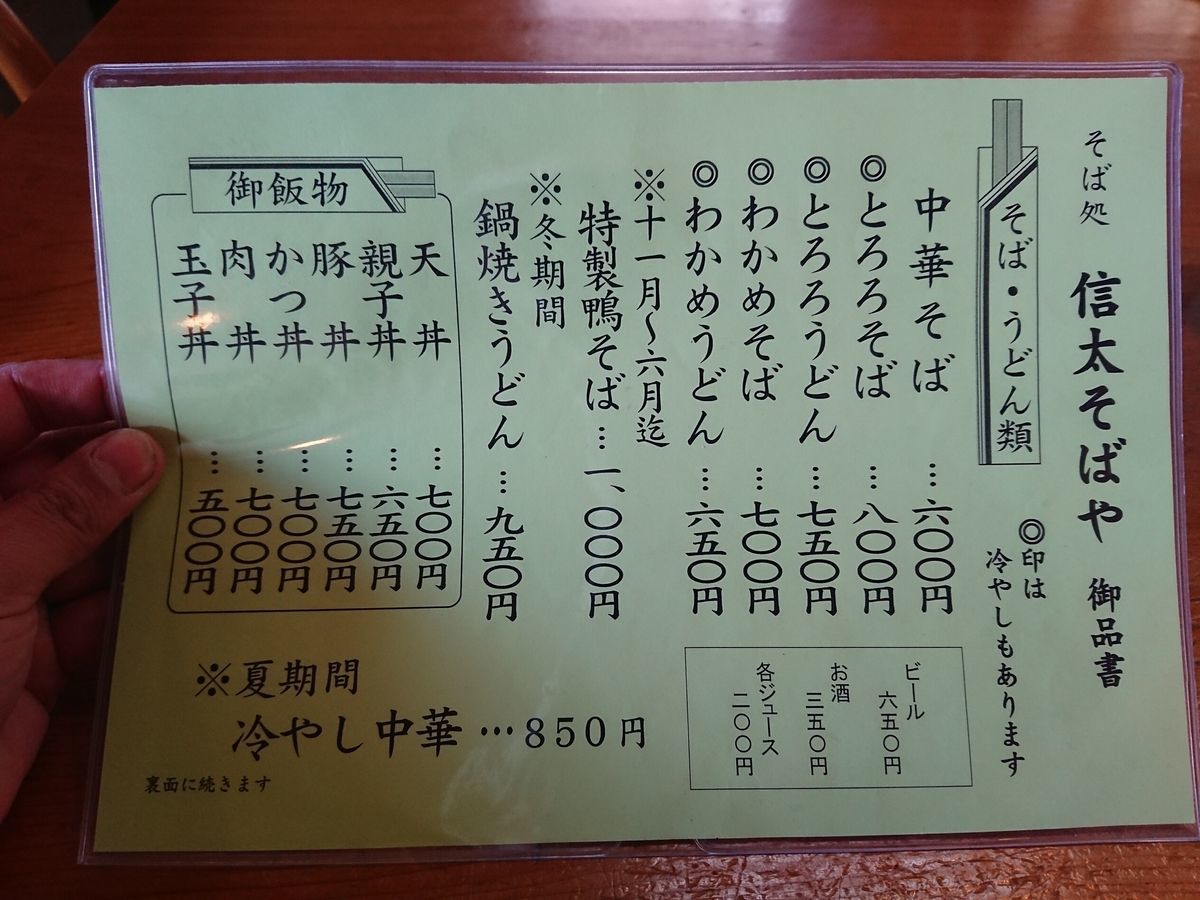 そば処 信太そばや 御品書
そば・うどん類
◎印は
冷やしもあります
中華そば…六〇〇円
◎とろろそば…八〇〇円
◎とろろうどん…七五〇円
◎わかめそば…七〇〇円
◎わかめうどん…六五〇円
※十一月～六月迄
特製鴨そば…一、〇〇〇円
※冬期間
鍋焼きうどん…九五〇円
ビール
六五〇円
お酒
三五〇円
各ジュース
二〇〇円
御飯物
天丼…七〇〇円
親子丼…六五〇円
豚丼…七五〇円
かつ丼…七〇〇円
肉丼…七〇〇円
玉子丼…五〇〇円
※夏期間
冷やし中華…850円
裏面に続きます